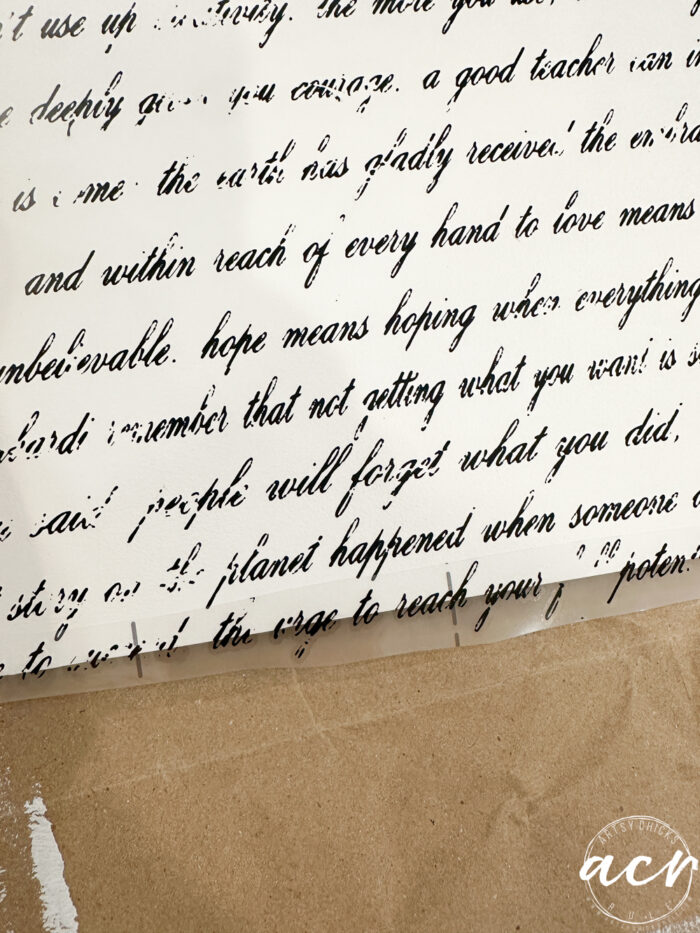 't use up creativity. the more you use,
deeply gives you courage. a good teacher can in
is come the earth has gladly received the embra
and within reach of every hand to love means
unbelievable. hope means hoping when everything
remember that not getting what you want is s
said people will forget what you did,
story on the planet happened when someone
to the urge to reach your full potent
ARTSY CHICKS
acr
RULE